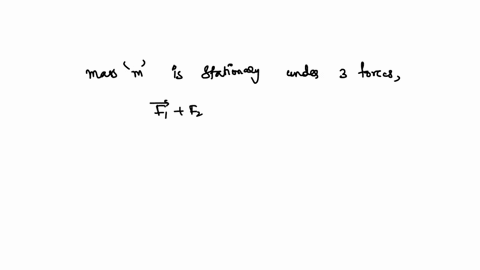 mass 'm' is stationary under 3 forces,
F₁ + F₂